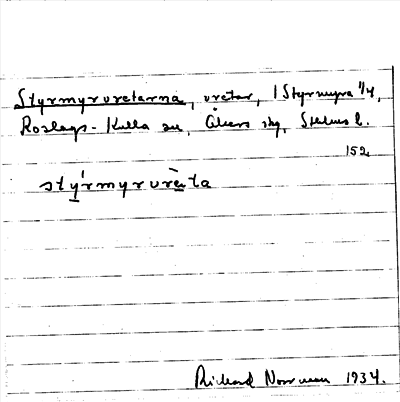 Styrmyrvretarna, vretar, 1 Styrmyra 1/4,
Roslags-Kulla sn, Åkers skg, Sthlms l.
152
stýrmyrvrèta
Rickard Norrman 1934.